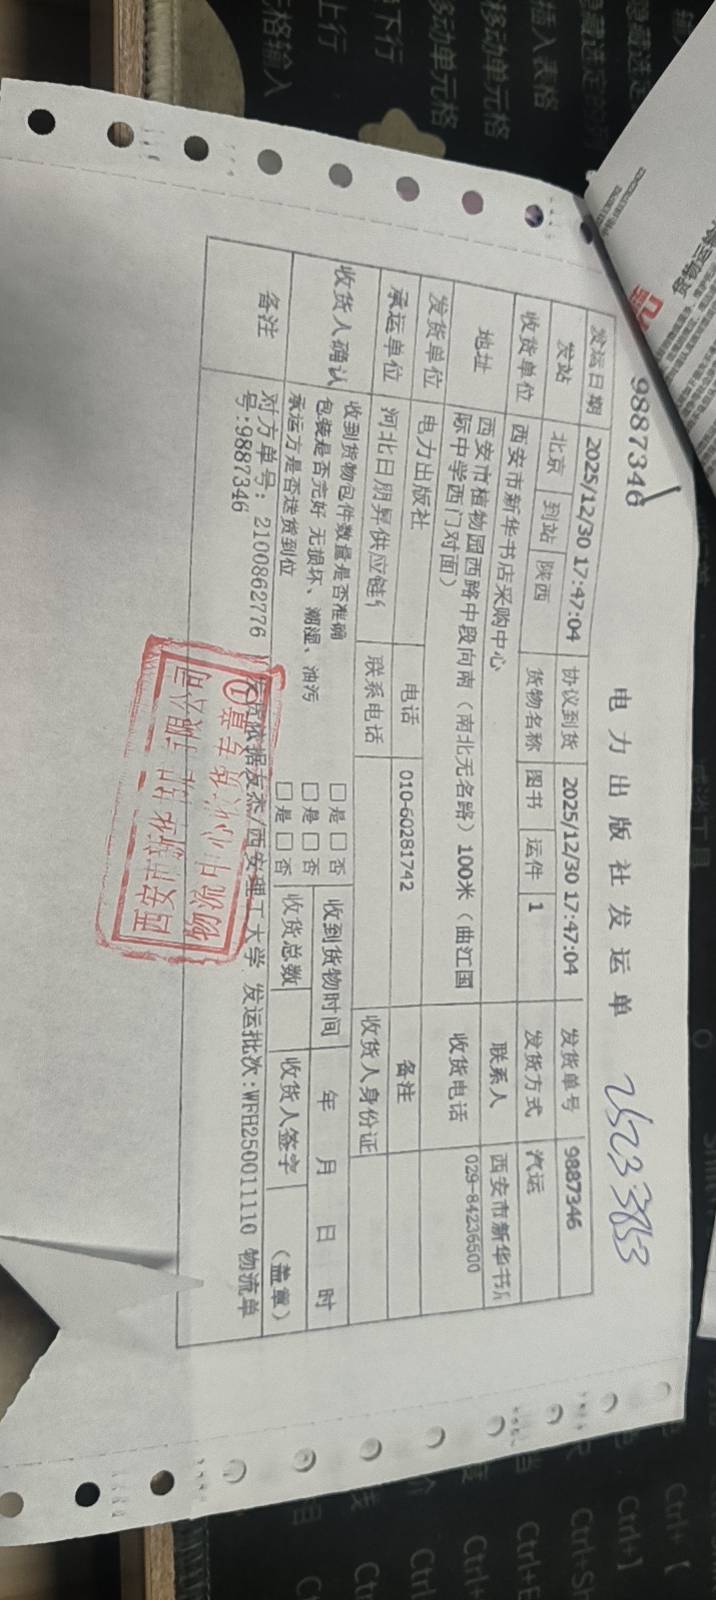 9887346
电力出版社发运单
25233853
发运日期 2025/12/30 17:47:04 协议到货 2025/12/30 17:47:04 发货单号 9887346
发站 北京 到站 陕西 货物名称 图书 运件 1 发货方式 汽运
收货单位 西安市新华书店采购中心 联系人 西安市新华书
地址 西安市植物园西路中段向南（南北无名路）100米（曲江国
际中学西门对面） 收货电话 029-84236500
发货单位 电力出版社 电话 010-60281742 备注
承运单位 河北日朋昇供应链 联系电话 收货人身份证
收货人确认 收到货物包件数量是否准确 □是 □否 收到货物时间 年 月 日 时
包装是否完好 无损坏、潮湿、油污 □是 □否
承运方是否送货到位 □是 □否 收货总数 收货人签字 （盖章）
备注 对方单号：2100862776 发货依据友杰/西安理工大学 发运批次:WFH250011110 物流单
号:9887346
西安市新华书店有限公司
物流中心收货专用章
①
货物运输
插入表格
移动单元格
下行
上行
格输入
隐藏选定的列
Ctrl+【
Ctrl+】